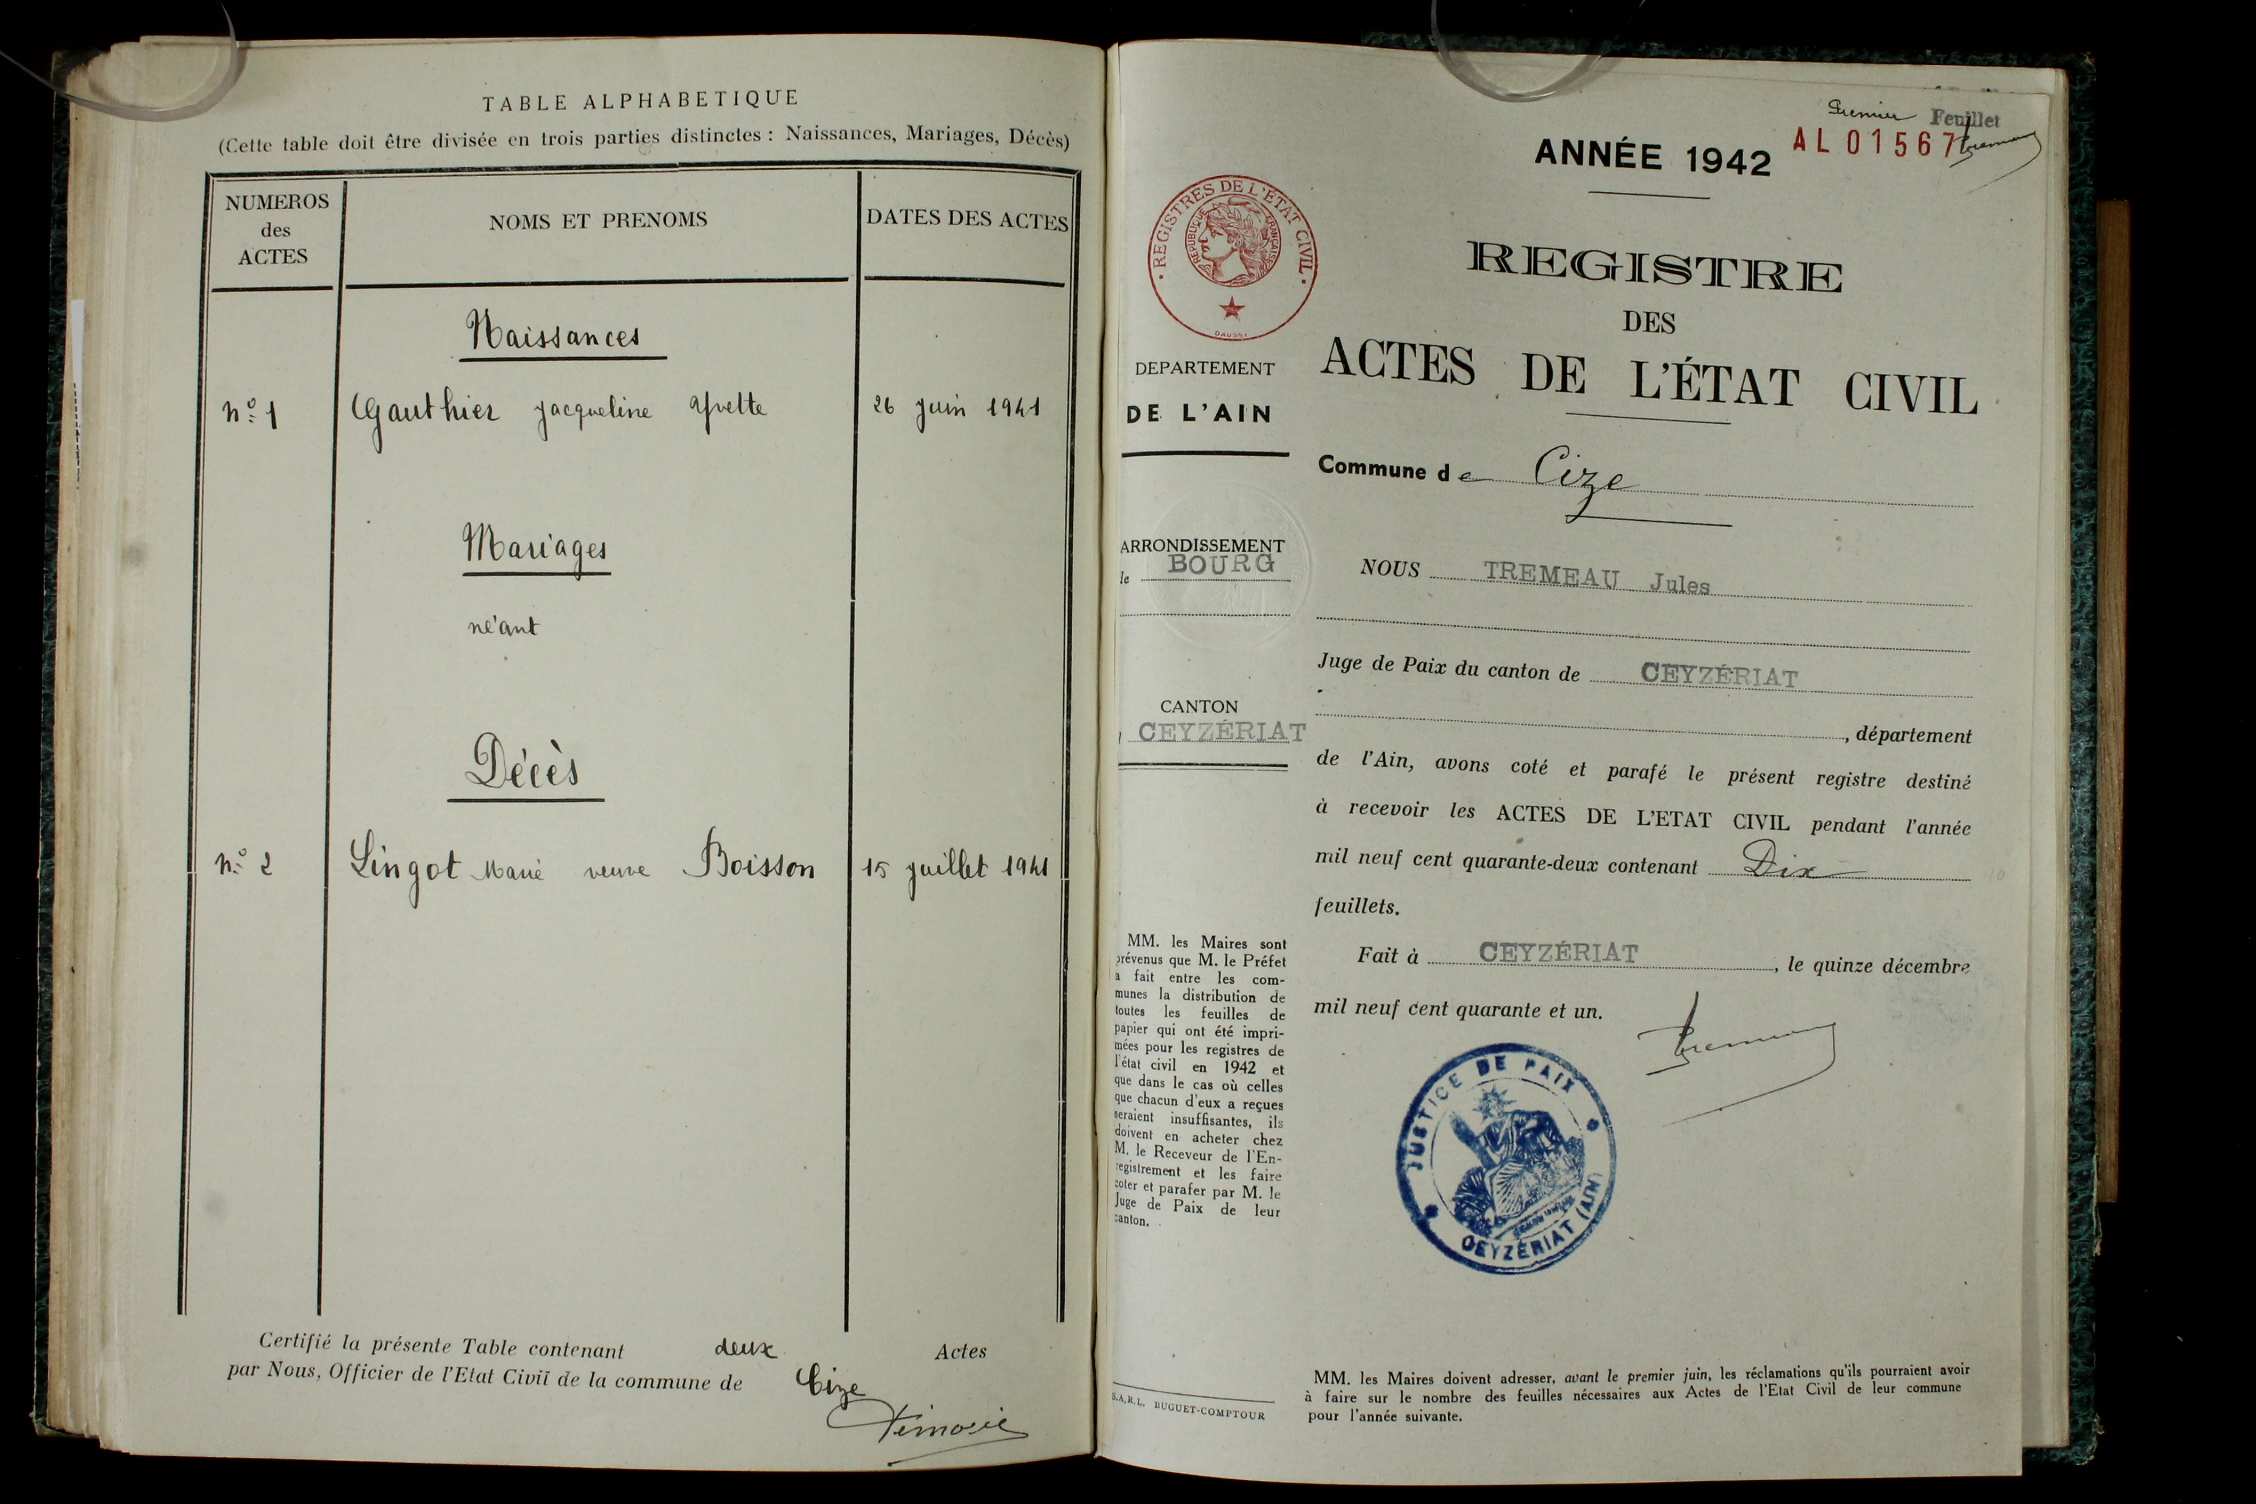 TABLE ALPHABETIQUE
(Cette table doit être divisée en trois parties distinctes : Naissances, Mariages, Décès)
NUMEROS
des
ACTES
NOMS ET PRENOMS
DATES DES ACTES
Naissances
N° 1 Gauthier Jacqueline Yvette 26 juin 1941
Mariages
néant
Décès
N° 2 Lingot Marie veuve Boisson 15 juillet 1941
Certifié la présente Table contenant deux Actes
par Nous, Officier de l'Etat Civil de la commune de Cize
Premier Feuillet
AL01567
ANNÉE 1942
REGISTRES DE L'ÉTAT CIVIL
REPUBLIQUE FRANÇAISE
REGISTRE
DES
ACTES DE L'ÉTAT CIVIL
DEPARTEMENT
DE L'AIN
Commune de Cize
ARRONDISSEMENT
de BOURG
NOUS TREMEAU Jules
Juge de Paix du canton de CEYZÉRIAT
CANTON
CEYZÉRIAT
, département
de l'Ain, avons coté et parafé le présent registre destiné
à recevoir les ACTES DE L'ETAT CIVIL pendant l'année
mil neuf cent quarante-deux contenant Dix
feuillets.
Fait à CEYZÉRIAT, le quinze décembre
mil neuf cent quarante et un.
JUSTICE DE PAIX
CEYZÉRIAT (AIN)
MM. les Maires sont
prévenus que M. le Préfet
a fait entre les com-
munes la distribution de
toutes les feuilles de
papier qui ont été impri-
mées pour les registres de
l'état civil en 1942 et
que dans le cas où celles
que chacun d'eux a reçues
seraient insuffisantes, ils
doivent en acheter chez
M. le Receveur de l'En-
registrement et les faire
coter et parafer par M. le
Juge de Paix de leur
canton.
S.A.R.L. BUGUET-COMPTOUR
MM. les Maires doivent adresser, avant le premier juin, les réclamations qu'ils pourraient avoir
à faire sur le nombre des feuilles nécessaires aux Actes de l'Etat Civil de leur commune
pour l'année suivante.